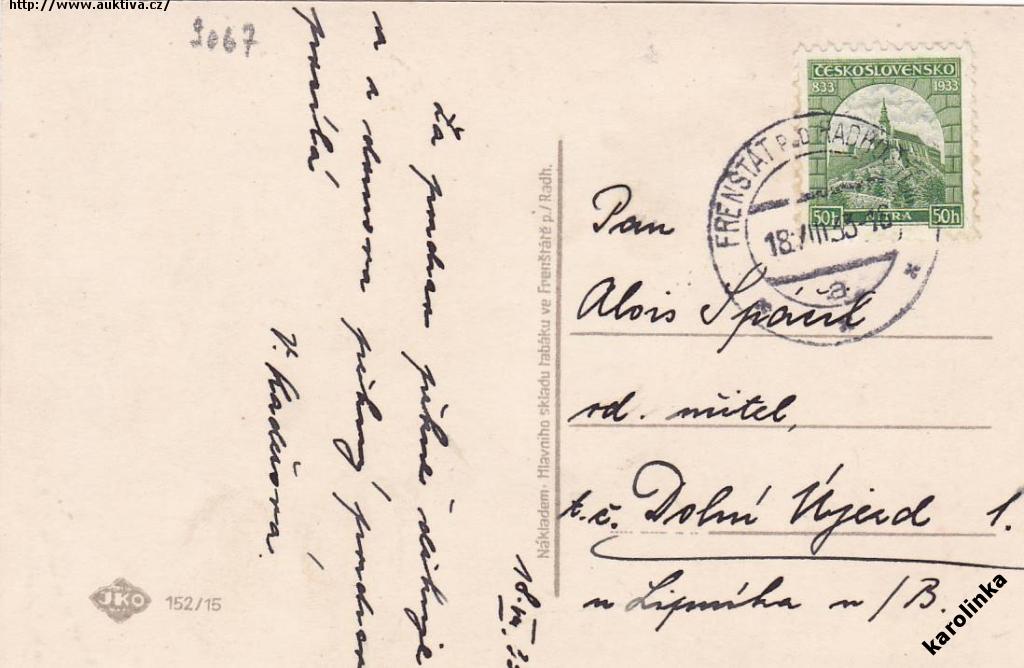 http://www.auktiva.cz/
9067
Za pozdrav pěkně děkuje
a z domova pěkný pozdrav
posílá
V. Kadůvra.
18.VIII.33
Nákladem Hlavního skladu tabáku ve Frenštátě p./Radh.
ČESKOSLOVENSKO
833 1933
50h NITRA 50h
FRENŠTÁT P.D. RADHOŠTĚM
18.VIII.33-16
a
Pan
Alois Špačil
od. učitel,
t.č. Dolní Újezd 1.
u Lipníka n/B.
JKO 152/15
karolinka